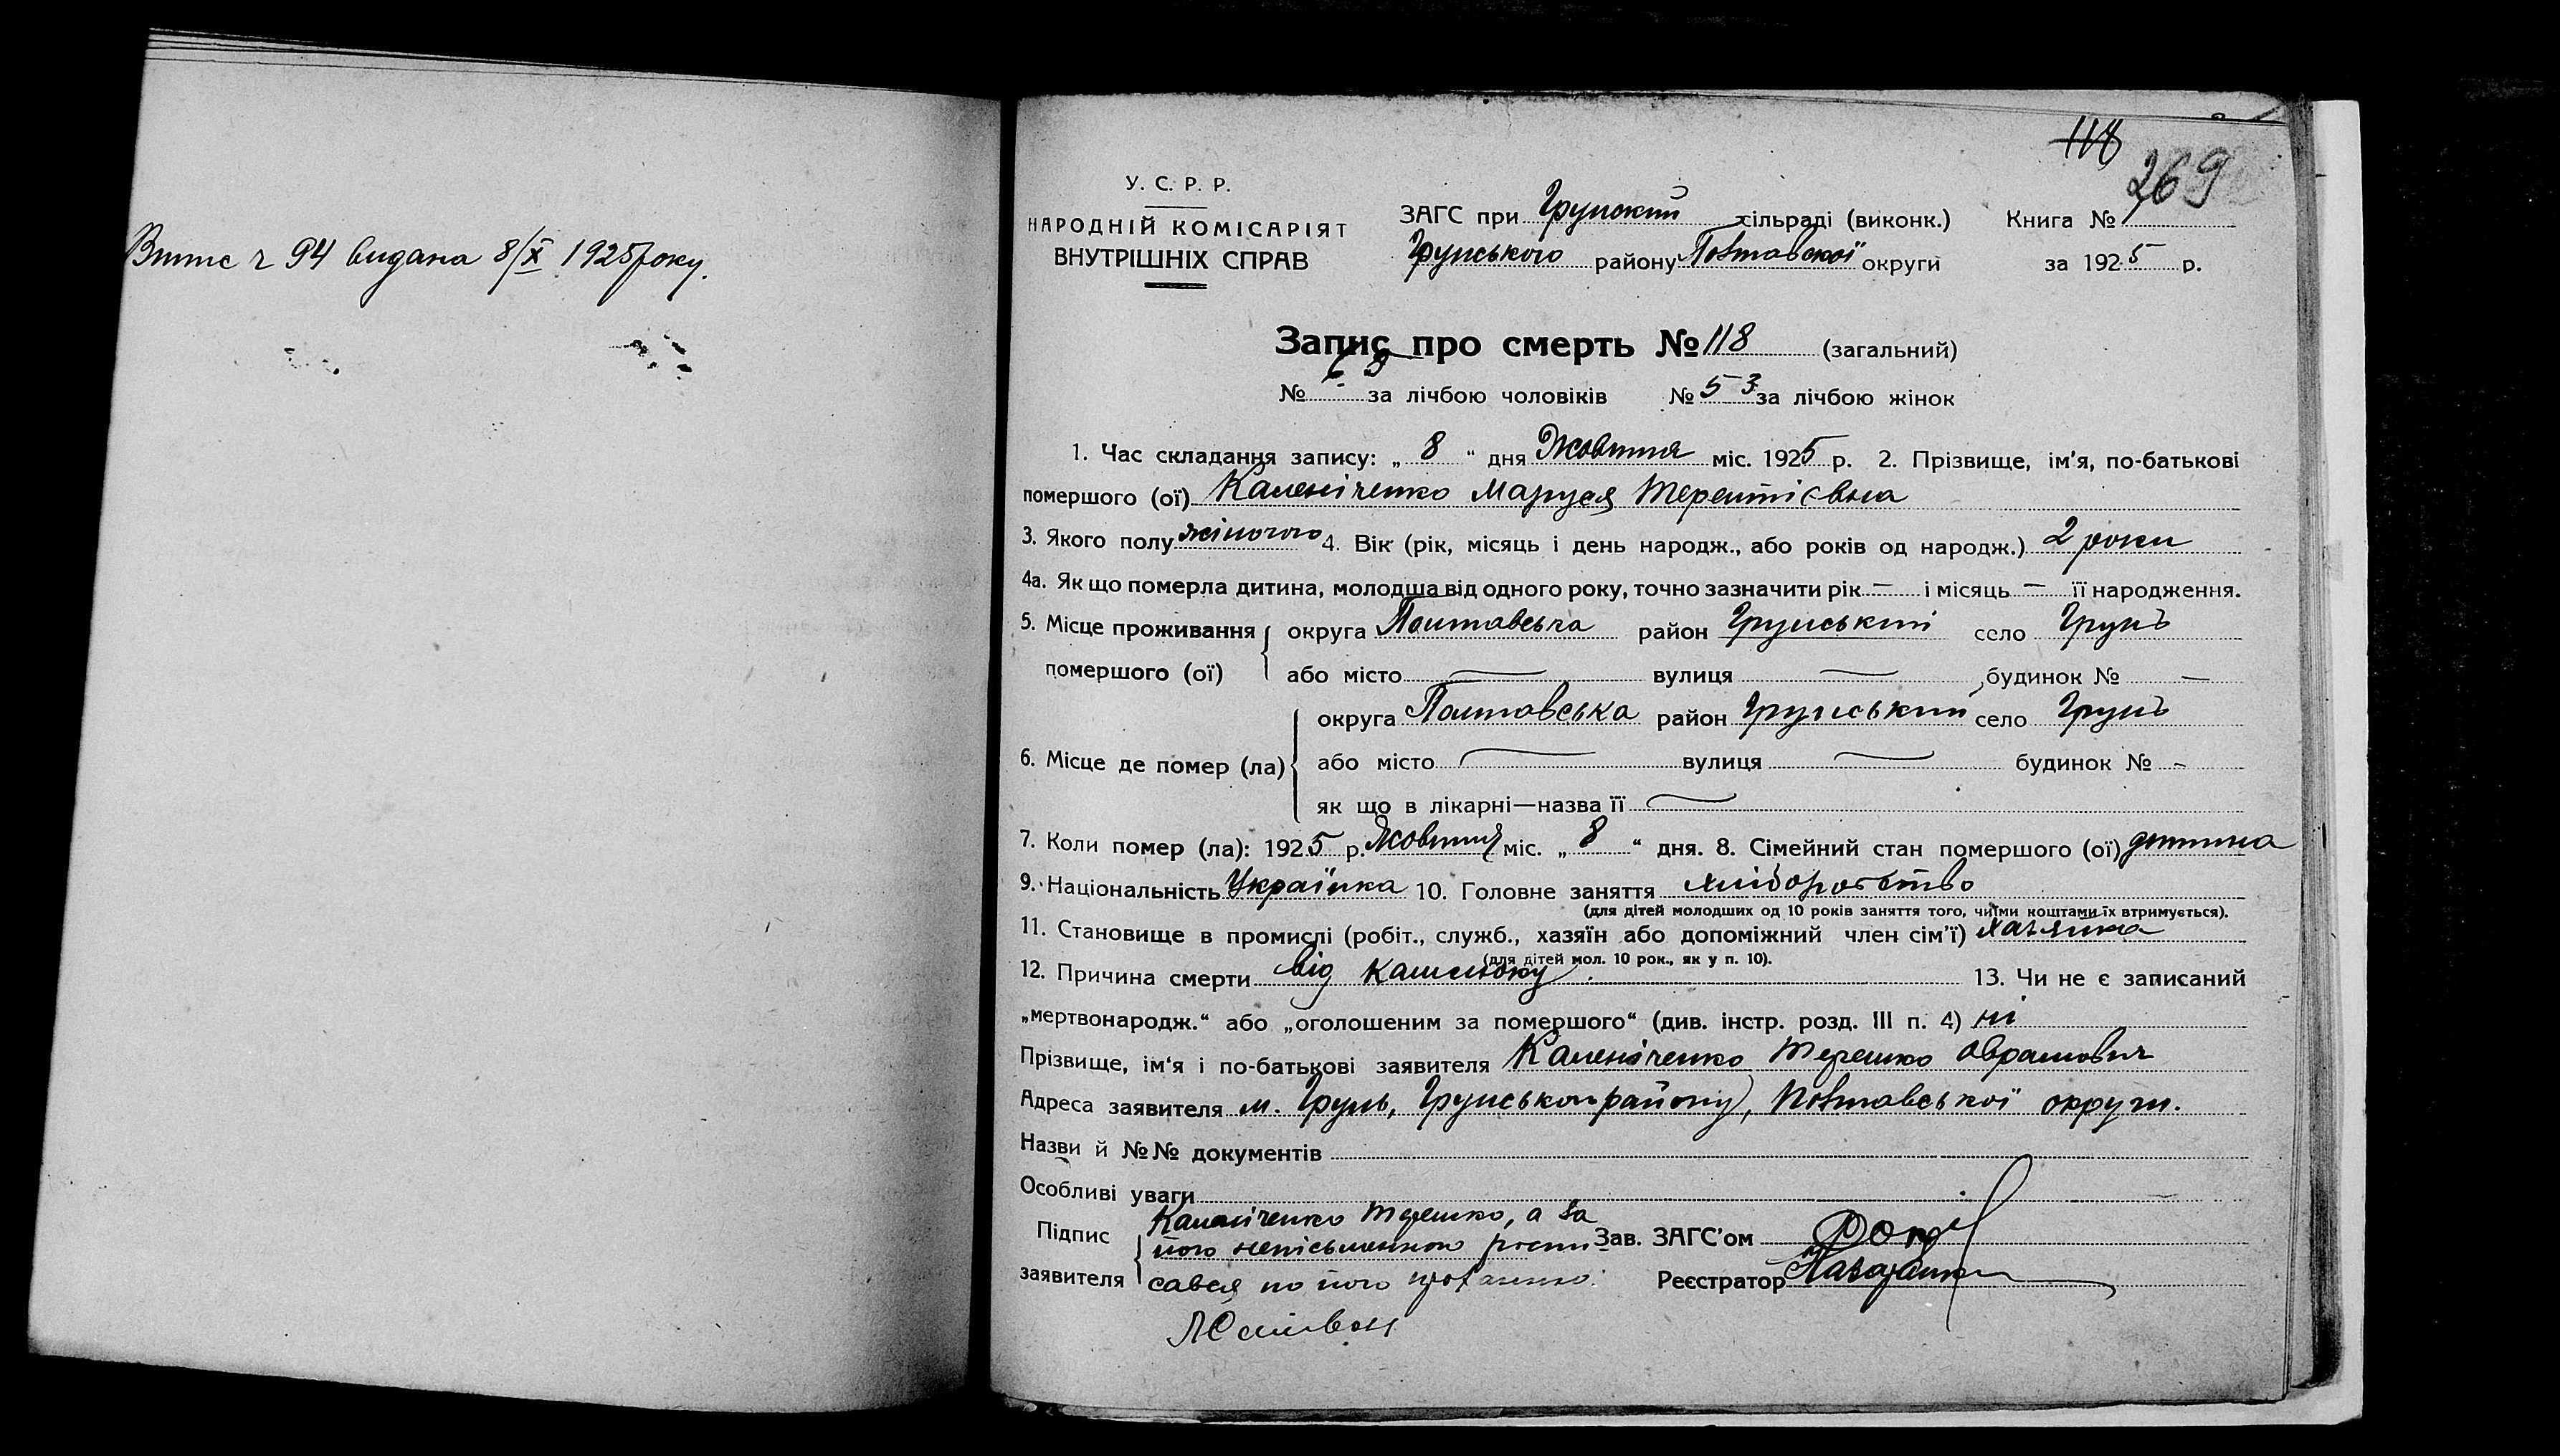 Випис ч 94 видана 8/X 1925 року.
118
269
У. С. Р. Р.
НАРОДНІЙ КОМІСАРІЯТ
ВНУТРІШНІХ СПРАВ
ЗАГС при Грунський сільраді (виконк.)
Грунського району Полтавської округи
Книга №
за 1925 р.
Запис про смерть № 118 (загальний)
№ за лічбою чоловіків № 53 за лічбою жінок
1. Час складання запису: „ 8 “ дня Жовтня міс. 1925 р. 2. Прізвище, ім'я, по-батькові
помершого (ої) Каленіченко Маруся Терентієвна
3. Якого полу жіночого 4. Вік (рік, місяць і день народж., або років од народж.) 2 роки
4а. Як що померла дитина, молодша від одного року, точно зазначити рік — і місяць — її народження.
5. Місце проживання помершого (ої) округа Полтавська район Грунський село Грунь
або місто — вулиця — будинок № —
6. Місце де помер (ла) округа Полтавська район Грунський село Грунь
або місто — вулиця — будинок № -
як що в лікарні—назва її —
7. Коли помер (ла): 1925 р. Жовтня міс. „ 8 “ дня. 8. Сімейний стан помершого (ої) дитина
9. Національність Українка 10. Головне заняття хліборобство
(для дітей молодших од 10 років заняття того, чиїми коштами їх втримується).
11. Становище в промислі (робіт., служб., хазяїн або допоміжний член сім'ї) хазяїна
(для дітей мол. 10 рок., як у п. 10).
12. Причина смерти від кашлюку. 13. Чи не є записаний
„мертвонародж.“ або „оголошеним за помершого“ (див. інстр. розд. III п. 4) ні
Прізвище, ім'я і по-батькові заявителя Каленіченко Терешко Оврамович
Адреса заявителя м. Грунь, Грунського району, Полтавської округи.
Назви й №№ документів
Особливі уваги
Підпис заявителя Каленіченко Терешко, а за
його неписьменного роспи-
сався по його проханню.
Зав. ЗАГС'ом
Реєстратор